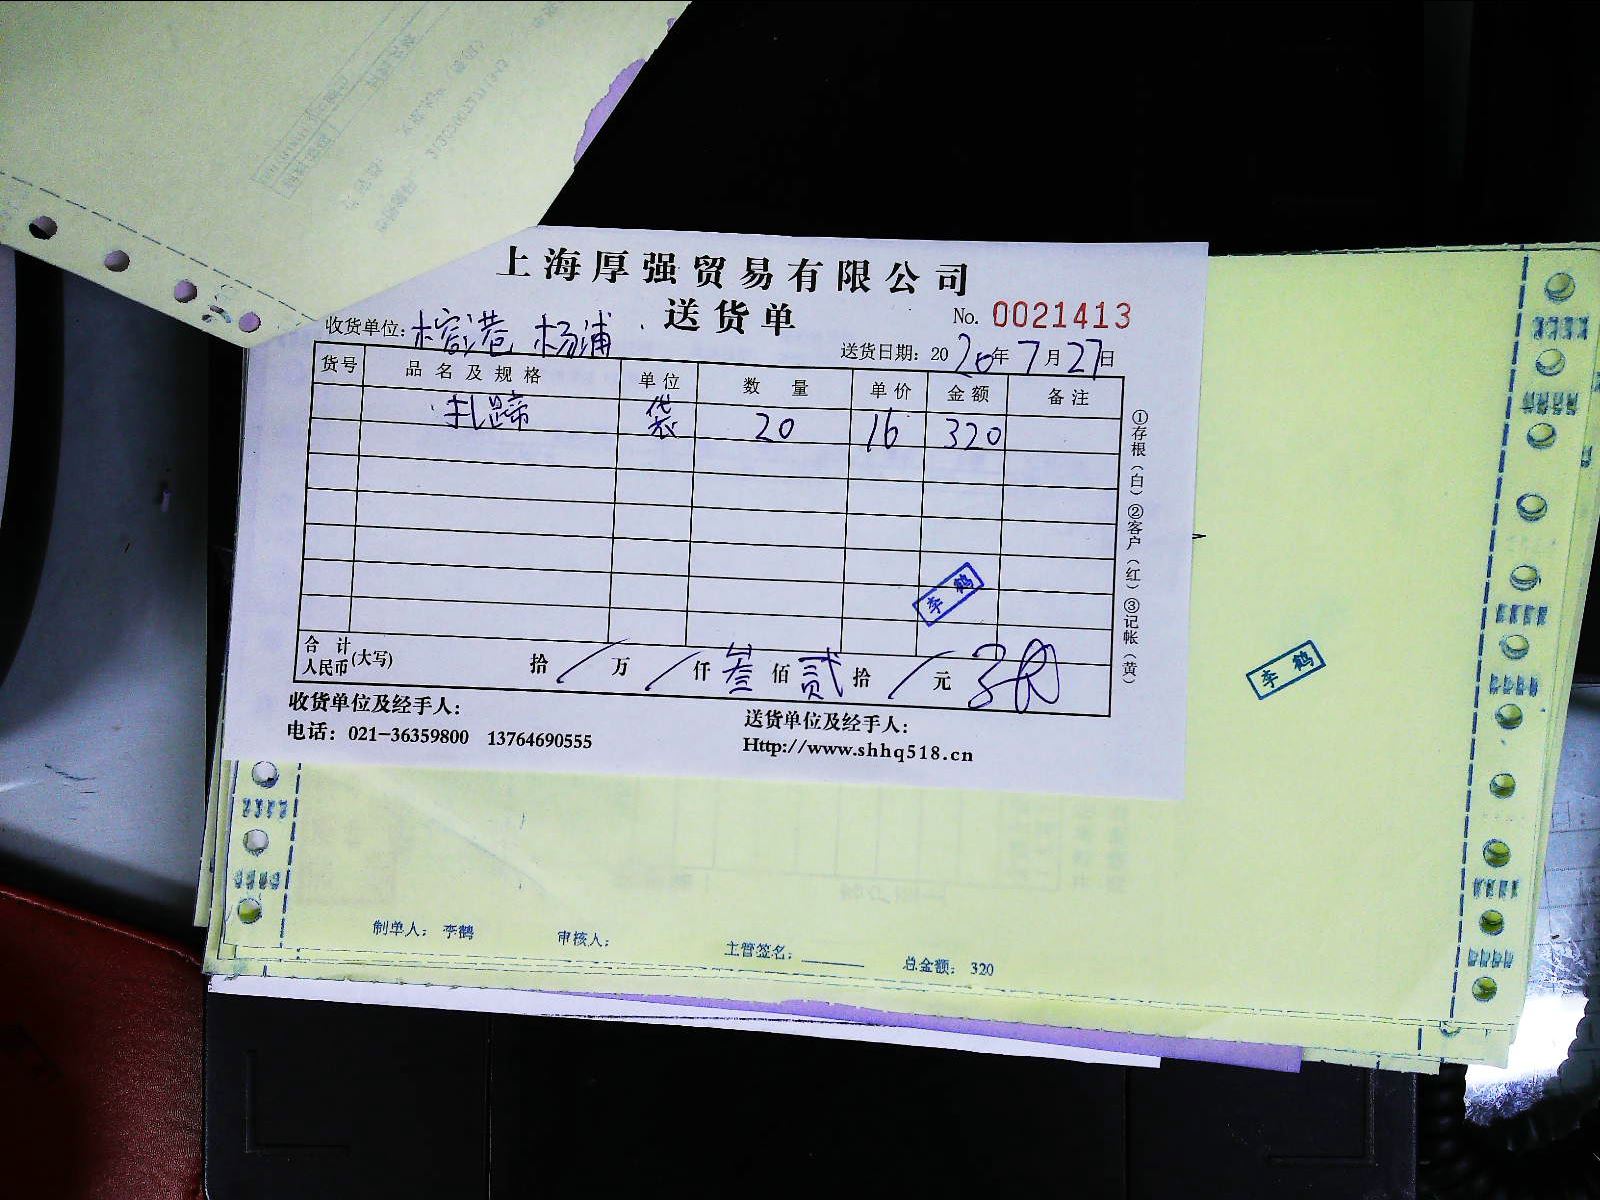 上海厚强贸易有限公司
送货单
No. 0021413
收货单位：榕港 杨浦
送货日期：2020年7月27日
货号 品名及规格 单位 数量 单价 金额 备注
扎蹄 袋 20 16 320
①存根（白）②客户（红）③记帐（黄）
李鹤
合计人民币(大写) 拾/万/仟叁佰贰拾/元
收货单位及经手人：
送货单位及经手人：
电话：021-36359800 13764690555
Http://www.shhq518.cn
李鹤
制单人：李鹤 审核人： 主管签名：______ 总金额：320